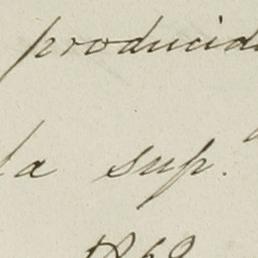 producid
la sup.